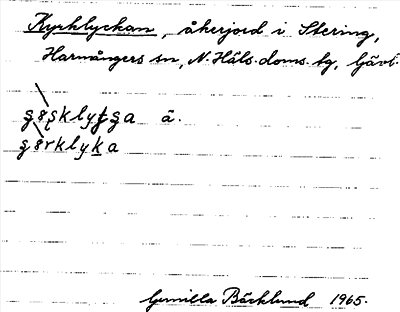 Kyrklyckan, åkerjord i Stering,
Harmångers sn, N. Häls. doms. tg, Gävl.
ä.
Gunilla Bäcklund 1965.